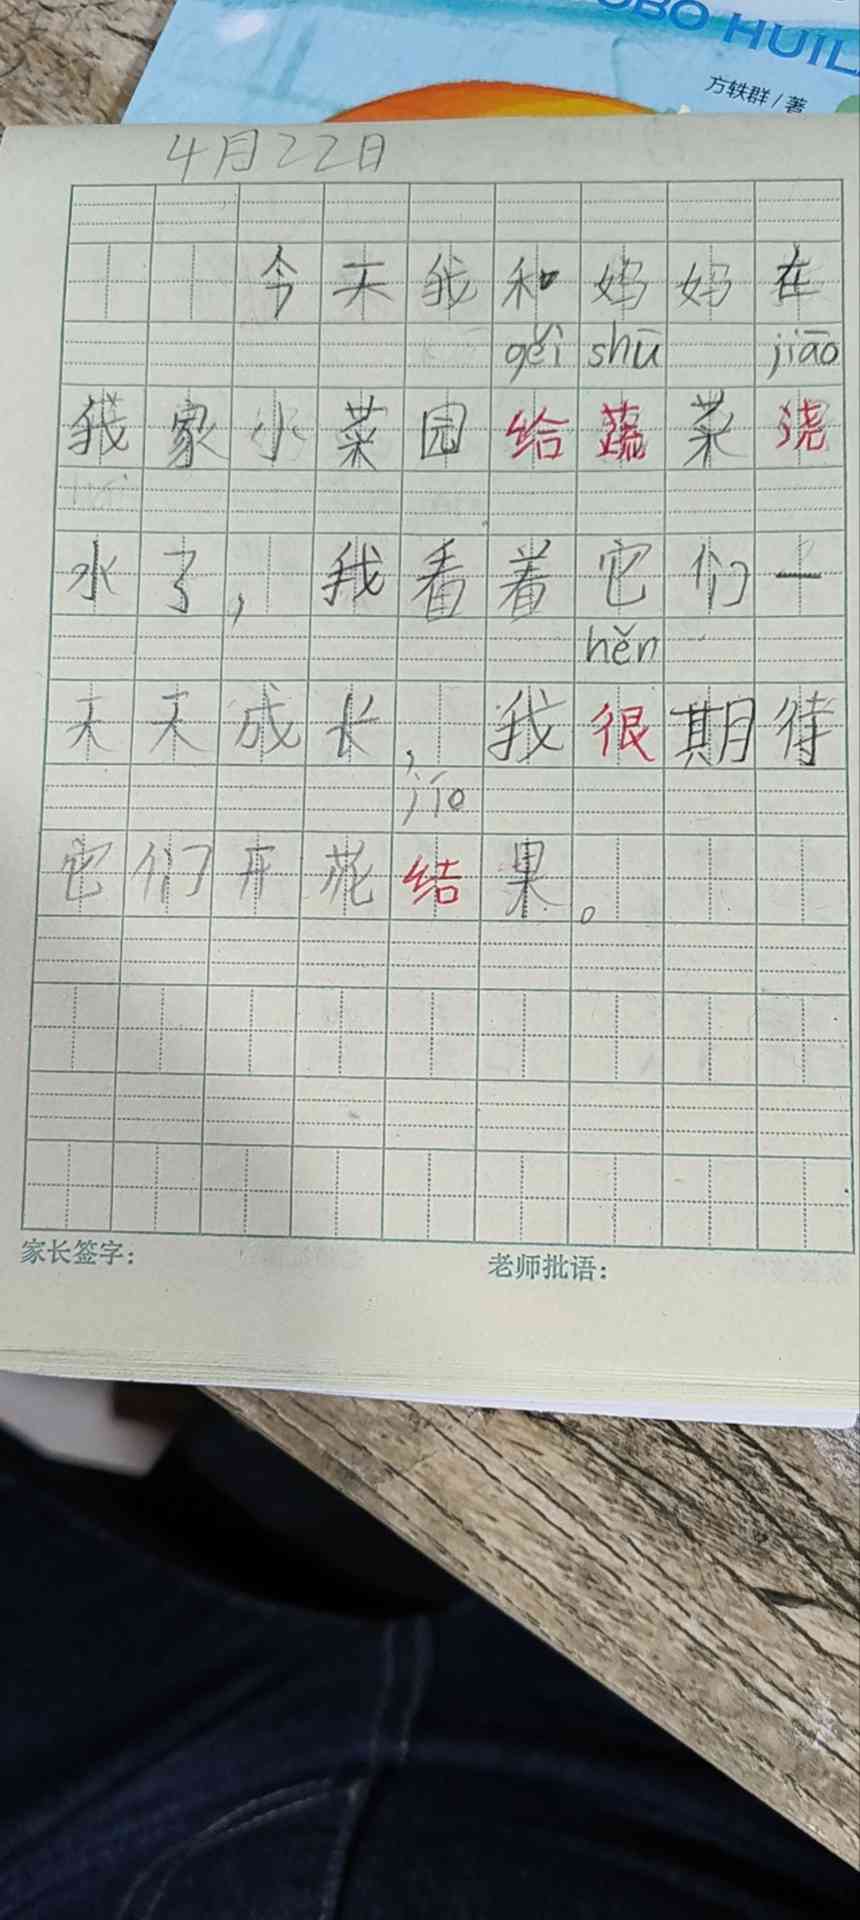 OBO HUIL
方轶群/著
4月22日
今天我和妈妈在
gěi shū jiāo
我家小菜园给蔬菜浇
水了，我看着它们一
hěn
天天成长，我很期待
jīe
它们开花结果。
家长签字： 老师批语：